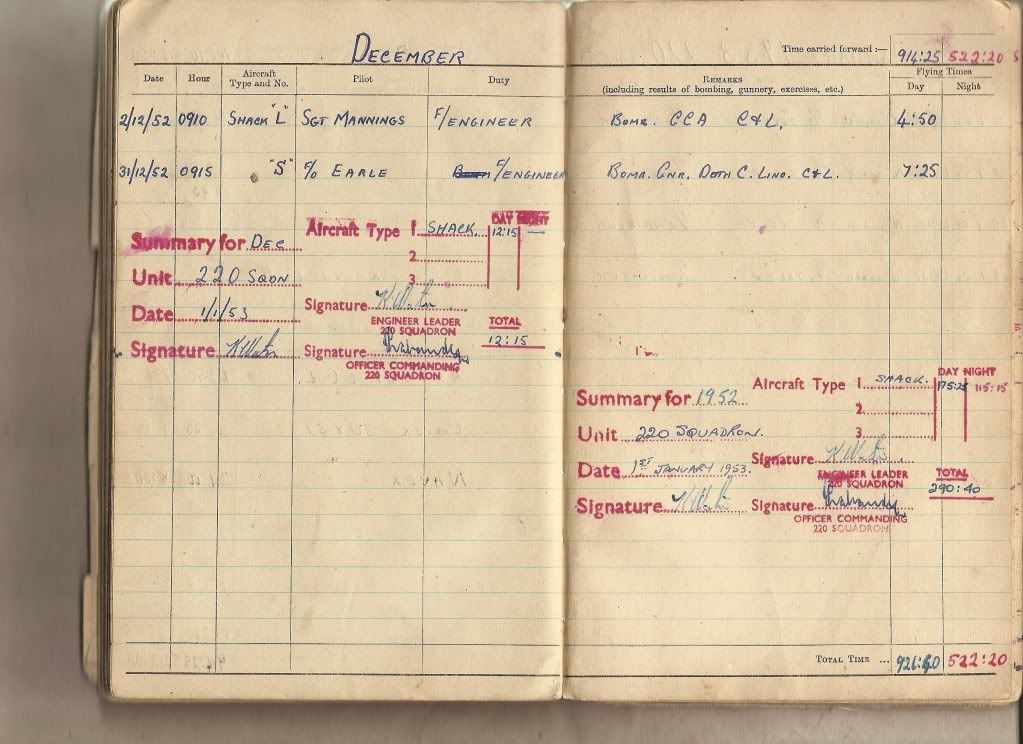 DECEMBER
Date Hour Aircraft Type and No. Pilot Duty
2/12/52 0910 SHACK "L" SGT MANNINGS F/ENGINEER
31/12/52 0915 "S" F/O EARLE F/ENGINEER
Summary for DEC
Unit 220 SQDN
Date 1/1/53
Signature
Aircraft Type 1 SHACK.
2
3
DAY NIGHT
12:15 —
Signature
ENGINEER LEADER
220 SQUADRON
Signature
OFFICER COMMANDING
220 SQUADRON
TOTAL
12:15
Time carried forward :— 914:25 522:20
REMARKS
(including results of bombing, gunnery, exercises, etc.)
Flying Times
Day Night
BOMB. GCA C&L. 4:50
BOMB. GNR. C&L. 7:25
Summary for 1952
Unit 220 SQUADRON.
Date 1ST JANUARY 1953.
Signature
Aircraft Type 1 SHACK.
2
3
DAY NIGHT
175:25 115:15
Signature
ENGINEER LEADER
220 SQUADRON
Signature
OFFICER COMMANDING
220 SQUADRON
TOTAL
290:40
TOTAL TIME ... 926:40 522:20